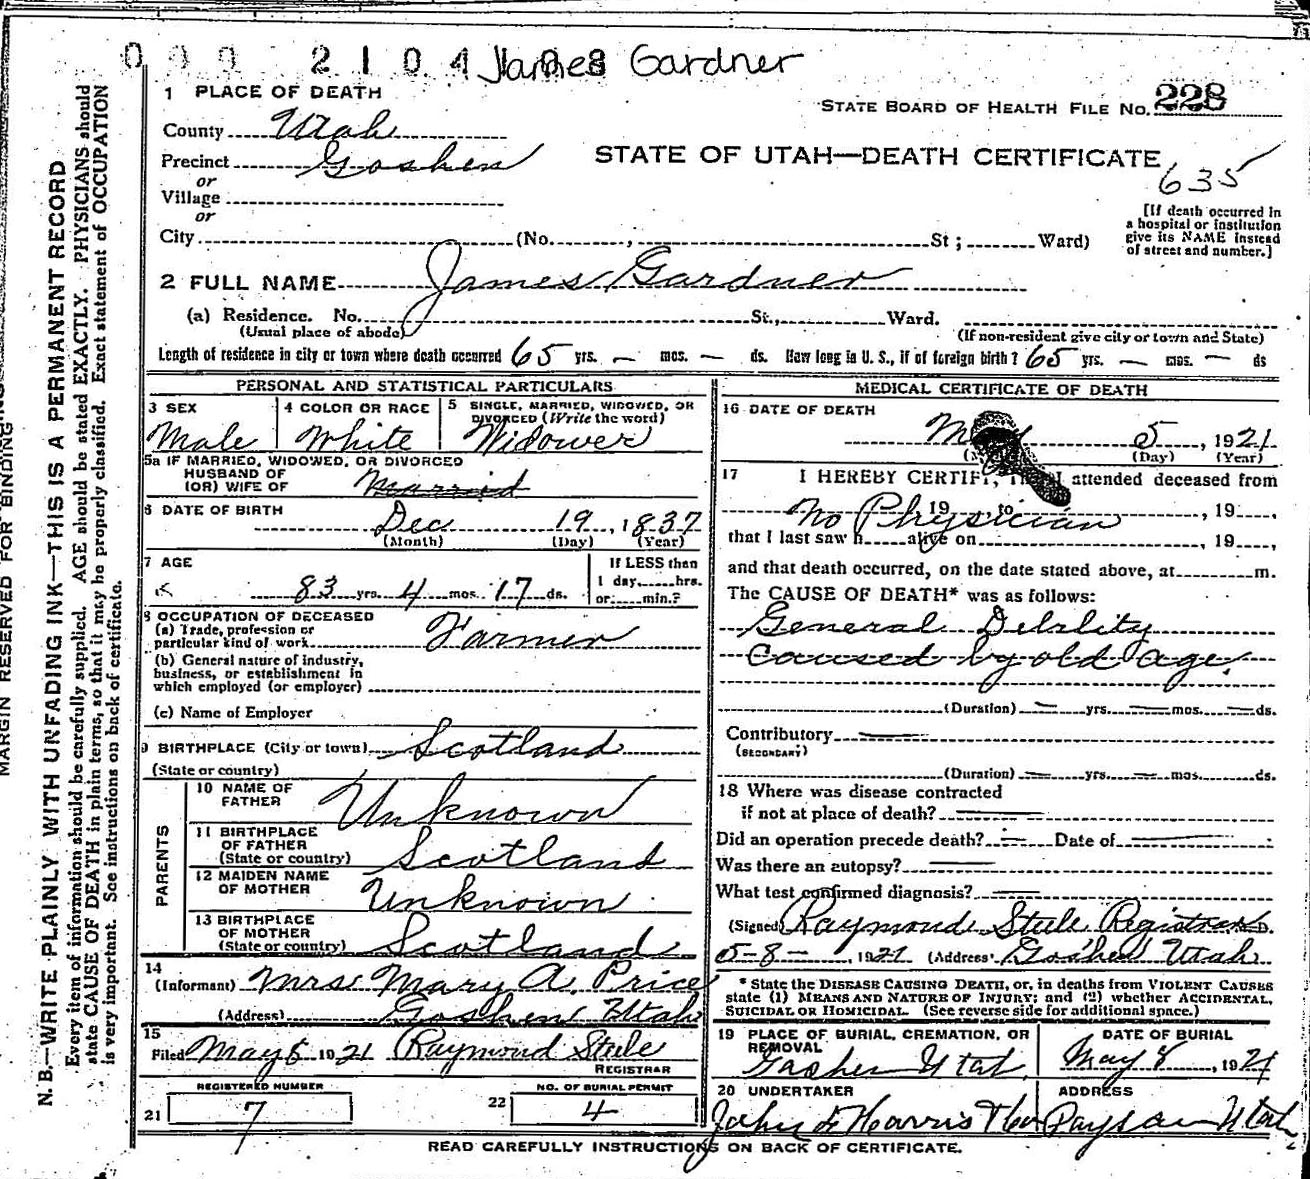 2 1 0 4 James Gardner
1 PLACE OF DEATH
STATE BOARD OF HEALTH FILE No. 228
County Utah
Precinct Goshen
STATE OF UTAH—DEATH CERTIFICATE
635
or
Village
or
[If death occurred in
a hospital or institution
give its NAME instead
of street and number.]
City (No. , St; Ward)
2 FULL NAME James Gardner
(a) Residence. No. St., Ward.
(Usual place of abode) (If non-resident give city or town and State)
Length of residence in city or town where death occurred 65 yrs. — mos. — ds. How long in U. S., if of foreign birth? 65 yrs. — mos. — ds
PERSONAL AND STATISTICAL PARTICULARS
3 SEX
Male
4 COLOR OR RACE
White
5 SINGLE, MARRIED, WIDOWED, OR
DIVORCED (Write the word)
Widower
5a IF MARRIED, WIDOWED, OR DIVORCED
HUSBAND OF
(OR) WIFE OF Married
6 DATE OF BIRTH
Dec 19, 1837
(Month) (Day) (Year)
7 AGE
83 yrs. 4 mos. 17 ds.
If LESS than
1 day, hrs.
or min.?
8 OCCUPATION OF DECEASED
(a) Trade, profession or
particular kind of work Farmer
(b) General nature of industry,
business, or establishment in
which employed (or employer)
(c) Name of Employer
9 BIRTHPLACE (City or town) Scotland
(State or country)
PARENTS
10 NAME OF
FATHER Unknown
11 BIRTHPLACE
OF FATHER
(State or country) Scotland
12 MAIDEN NAME
OF MOTHER Unknown
13 BIRTHPLACE
OF MOTHER
(State or country) Scotland
14
(Informant) Mrs Mary A. Price
(Address) Goshen Utah
15
Filed May 1921 Raymond Steele
REGISTRAR
REGISTERED NUMBER
21 7
NO. OF BURIAL PERMIT
22 4
MEDICAL CERTIFICATE OF DEATH
16 DATE OF DEATH
5, 1921
(Day) (Year)
17 I HEREBY CERTIFY, attended deceased from
No Physician
, 19 , to , 19 ,
that I last saw h alive on , 19 ,
and that death occurred, on the date stated above, at m.
The CAUSE OF DEATH* was as follows:
General Debility
caused by old age.
(Duration) — yrs. — mos. — ds.
Contributory —
(SECONDARY)
(Duration) — yrs. — mos. — ds.
18 Where was disease contracted
if not at place of death? —
Did an operation precede death? — Date of —
Was there an autopsy? —
What test confirmed diagnosis? —
(Signed) Raymond Steele Registrar
5-8-, 1921 (Address) Goshen Utah
* State the DISEASE CAUSING DEATH, or, in deaths from VIOLENT CAUSES
state (1) MEANS AND NATURE OF INJURY; and (2) whether ACCIDENTAL,
SUICIDAL OR HOMICIDAL. (See reverse side for additional space.)
19 PLACE OF BURIAL, CREMATION, OR
REMOVAL
Goshen Utah
DATE OF BURIAL
May 8, 1921
20 UNDERTAKER
Harris
ADDRESS
Payson Utah
READ CAREFULLY INSTRUCTIONS ON BACK OF CERTIFICATE.
MARGIN RESERVED FOR BINDING
N. B.—WRITE PLAINLY WITH UNFADING INK—THIS IS A PERMANENT RECORD
Every item of information should be carefully supplied. AGE should be stated EXACTLY. PHYSICIANS should
state CAUSE OF DEATH in plain terms, so that it may be properly classified. Exact statement of OCCUPATION
is very important. See instructions on back of certificate.